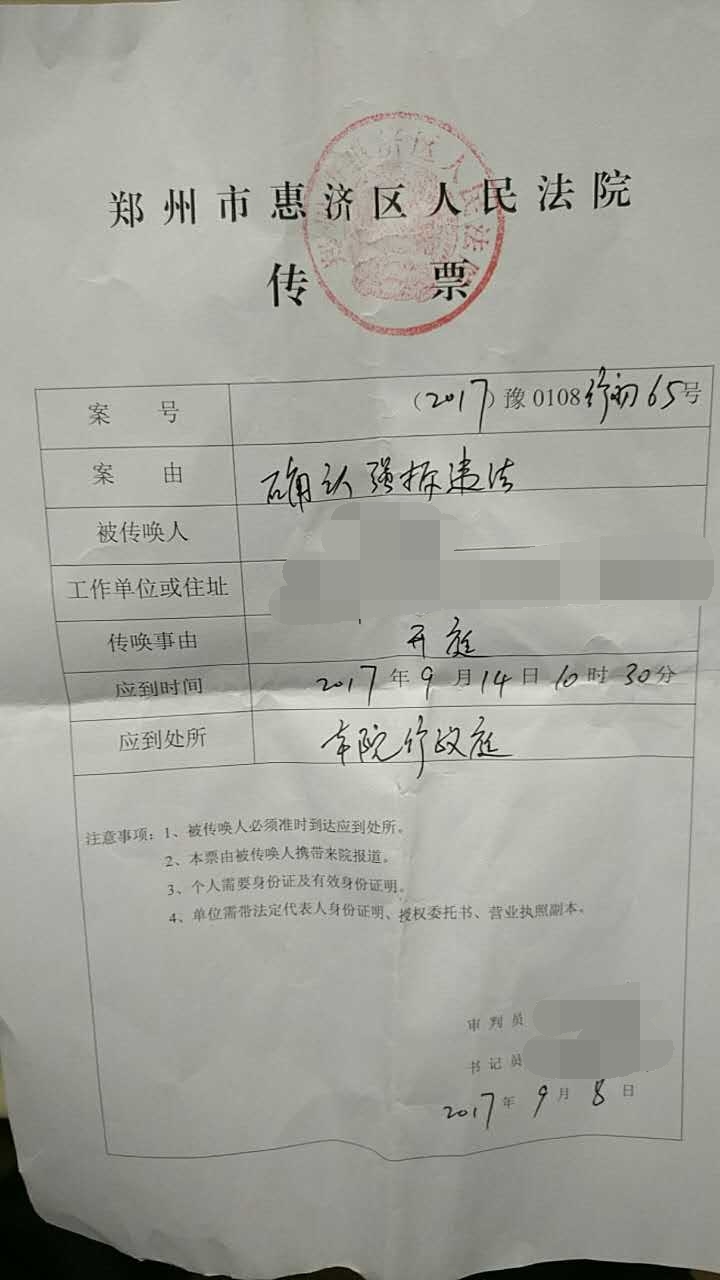 郑州市惠济区人民法院
传 票
案 号 (2017)豫0108行初65号
案 由 确认强拆违法
被传唤人
工作单位或住址
传唤事由 开庭
应到时间 2017年9月14日10时30分
应到处所 本院行政庭
注意事项：1、被传唤人必须准时到达应到处所。
2、本票由被传唤人携带来院报道。
3、个人需要身份证及有效身份证明。
4、单位需带法定代表人身份证明、授权委托书、营业执照副本。
审判员
书记员
2017年9月8日